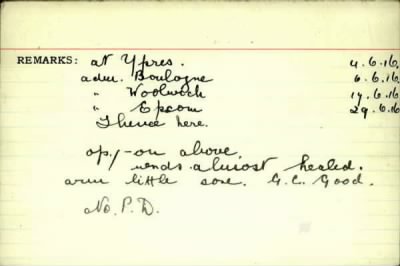 REMARKS: at Ypres. 4.6.16.
adm. Boulogne 6.6.16.
" Woolwich 17.6.16
" Epsom 29.6.16
Thence here.
op/-on above,
wnds almost healed.
arm little sore. G.C. Good.
No. P. D.